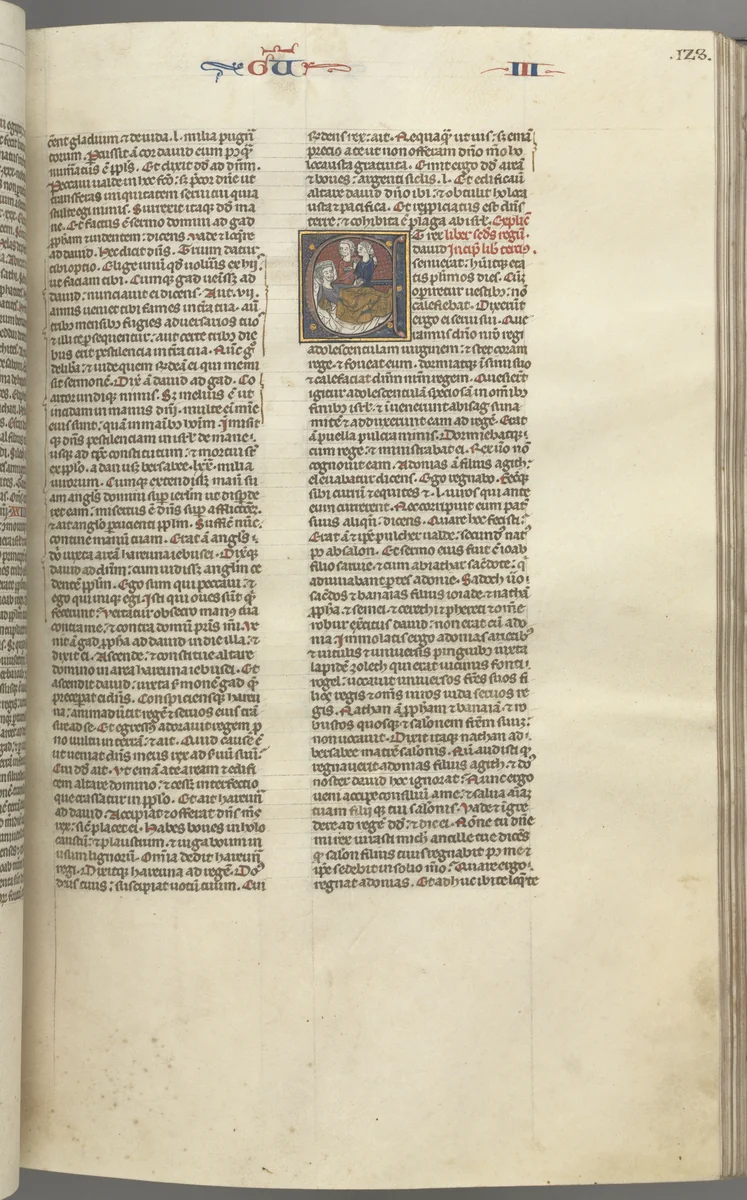 GU
III
.128.
cent gladium & de vida .l. milia pugn
torum. Percussit a cor david eum
numatus e ppls. Et dixit dd ad dnm.
Peccavi valde in hoc fco: s; pcor dne ut
transferas iniquitatem servi tui quia
stulte egi nimis. Surrexit itaq; dd ma
ne. Et factus e sermo domini ad gad
ppham & videntem: dicens. Vade & loqre
ad david. Hec dicit dns. Trium datur
tibi optio. Elige unu qd volueris ex hiis
ut faciam tibi. Cumq; gad venisset ad
david: nunciavit ei dicens. Aut .vii.
annis veniet tibi fames in tra tua. aut
tribus mensibus fugies adversarios tuos
& illi te psequentur: aut certe tribus die
bus erit pestilencia in tra tua. Nunc g
delibera & vide quem
sit sermone. Dixit a david ad gad. Co
artor undiq; nimis. Sz melius e ut
incidam in manus dni. multe ei mie
eius sunt: quam in manibus hoim. Imisit
q; dns pestilenciam in isrl de mane.
usq; ad tps constitutum: & mortui st
ex pplo. a dan usq; bersabee .lxx. milia
virorum. Cumq; extendisset manu sua
angls domini sup ierlm ut disperde
ret eam: misertus e dns sup afflictoe.
& ait anglo percucienti pplm. Sufficit nunc.
contine manu tuam. Erat a angls
dni iuxta area hareuna iebusei. Dixitq;
david ad dnm: cum vidisset anglum ce
dentem pplm. Ego sum qui peccavi: &
ego qui iniq; egi. Isti qui oves sunt qd
fecerunt? Vertatur obsecro manus tua
contra me: & contra domum pris mi. Ve
nit a gad ppha ad david in die illa: &
dixit ei. Ascende: & constitue altare
domino in area hareuna iebusei. Et
ascendit david: iuxta smonem gad qm
preceperat ei dns. Conspiciensq; hareu
na: animadvertit regem & servos eius tran
sire ad se. Et egressus adoravit regem p
no vultu in terra: & ait. Quid cause e
ut veniat dns meus rex ad svum suum?
Cui dd ait. Ut emam a te aream & edifi
cem altare domino: & cesset interfectio
que crassatur in pplo. Et ait hareuna
ad david. Accipiat & offerat dns ms
rex: sic placet ei. Habes boves in holo
caustum: & plaustrum & iuga boum in
usum lignorum. Omia dedit hareuna
regi. Dixitq; hareuna ad regem. Dns
deus tuus: suscipiat votum tuum. Cui
rex: ait. Nequaqm ut vis: s; emam
precio a te & non offeram dno mo ho
locausta gratuita. Emit ergo dd aream
& boves: argenti siclis .l. Et edificavit
altare david dno ibi: & obtulit holoca
usta & pacifica. Et reppiciatus est dns
terre: & cohibita e plaga ab isrl. Explic
Et rex liber scds regum.
david Incipit lib tercius.
senuerat: habuitq; eta
tis plimos dies. Cuq;
opiretur vestibus: no
calefiebat. Dixerunt
ergo ei servi sui. Que
ramus dno nro regi
adolescentulam virginem: & stet coram
rege. & foveat eum. dormiatq; in sinu suo
& calefaciat dnm nrm regem. Quesierunt
igitur adolescentulam speciosam in omibs
finibus isrl. & invenerunt abisag suna
mitem & adduxerunt eam ad regem. Erat
a puella pulcra nimis. Dormiebatq;
cum rege: & ministrabat ei. Rex vo no
cognovit eam. Adonias a filius agith:
elevabatur dicens. Ego regnabo. Fecitq;
sibi currum & equites & .l. viros qui ante
eum currerent. Nec corripuit eum pat
suus aliqn: dicens. Quare hoc fecisti?
Erat a & ipse pulcher valde: secundus nat
p absalon. Et sermo eius fuit cu ioab
filio sarvie: & cum abiathar sacdote: q
adiuvabant ptes adonie. Sadoch vo
sacdos & banaias filius ioiade & nathan
ppha & semei & cerethi & pherethi & ome
robur exercitus david: non erat cu ado
nia. Immolatis ergo adonias arietibus
& vitulis & universis pinguibus iuxta
lapidem zoleth qui erat vicinus fonti
rogel: vocavit universos fres suos fi
lios regis & oms viros iuda servos re
gis. Nathan a ppham & banaiam & ro
bustos quosq; & salonem frem suum:
non vocavit. Dixit itaq; nathan ad
bersabee matrem salonis. Num audisti q
regnaverit adonias filius agith: & dns
noster david hoc ignorat? Nunc ergo
veni accipe consilium a me: & salva aiam
tuam filiiq; tui salonis. Vade & ingre
dere ad regem dd: & dic ei. Nonne tu dne
mi rex iurasti michi ancille tue dicens
q salon filius tuus regnabit p me &
ipse sedebit in solio mo? Quare ergo
regnat adonias. Et adhuc ibi te loqnte